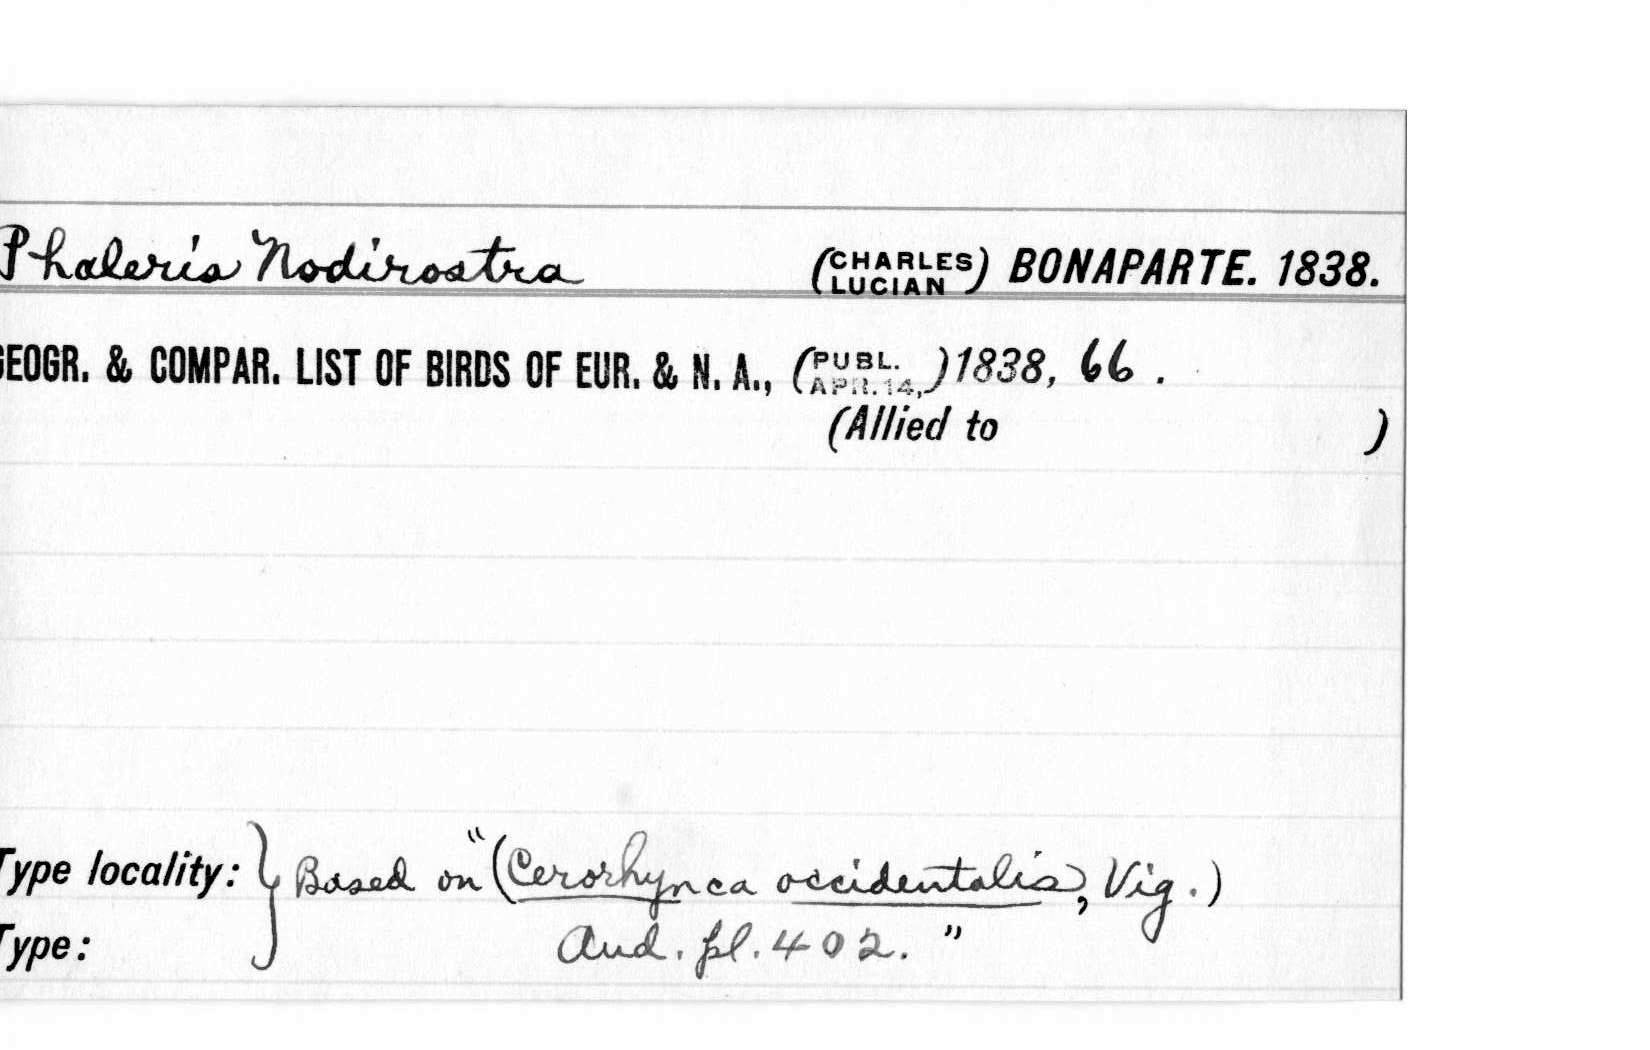 Phaleris Nodirostra (CHARLES LUCIAN) BONAPARTE. 1838.
GEOGR. & COMPAR. LIST OF BIRDS OF EUR. & N. A., (PUBL. APR. 14,) 1838, 66 .
(Allied to )
Type locality: } Based on "(Cerorhynca occidentalis, Vig.)
Type: Aud. pl. 402. "